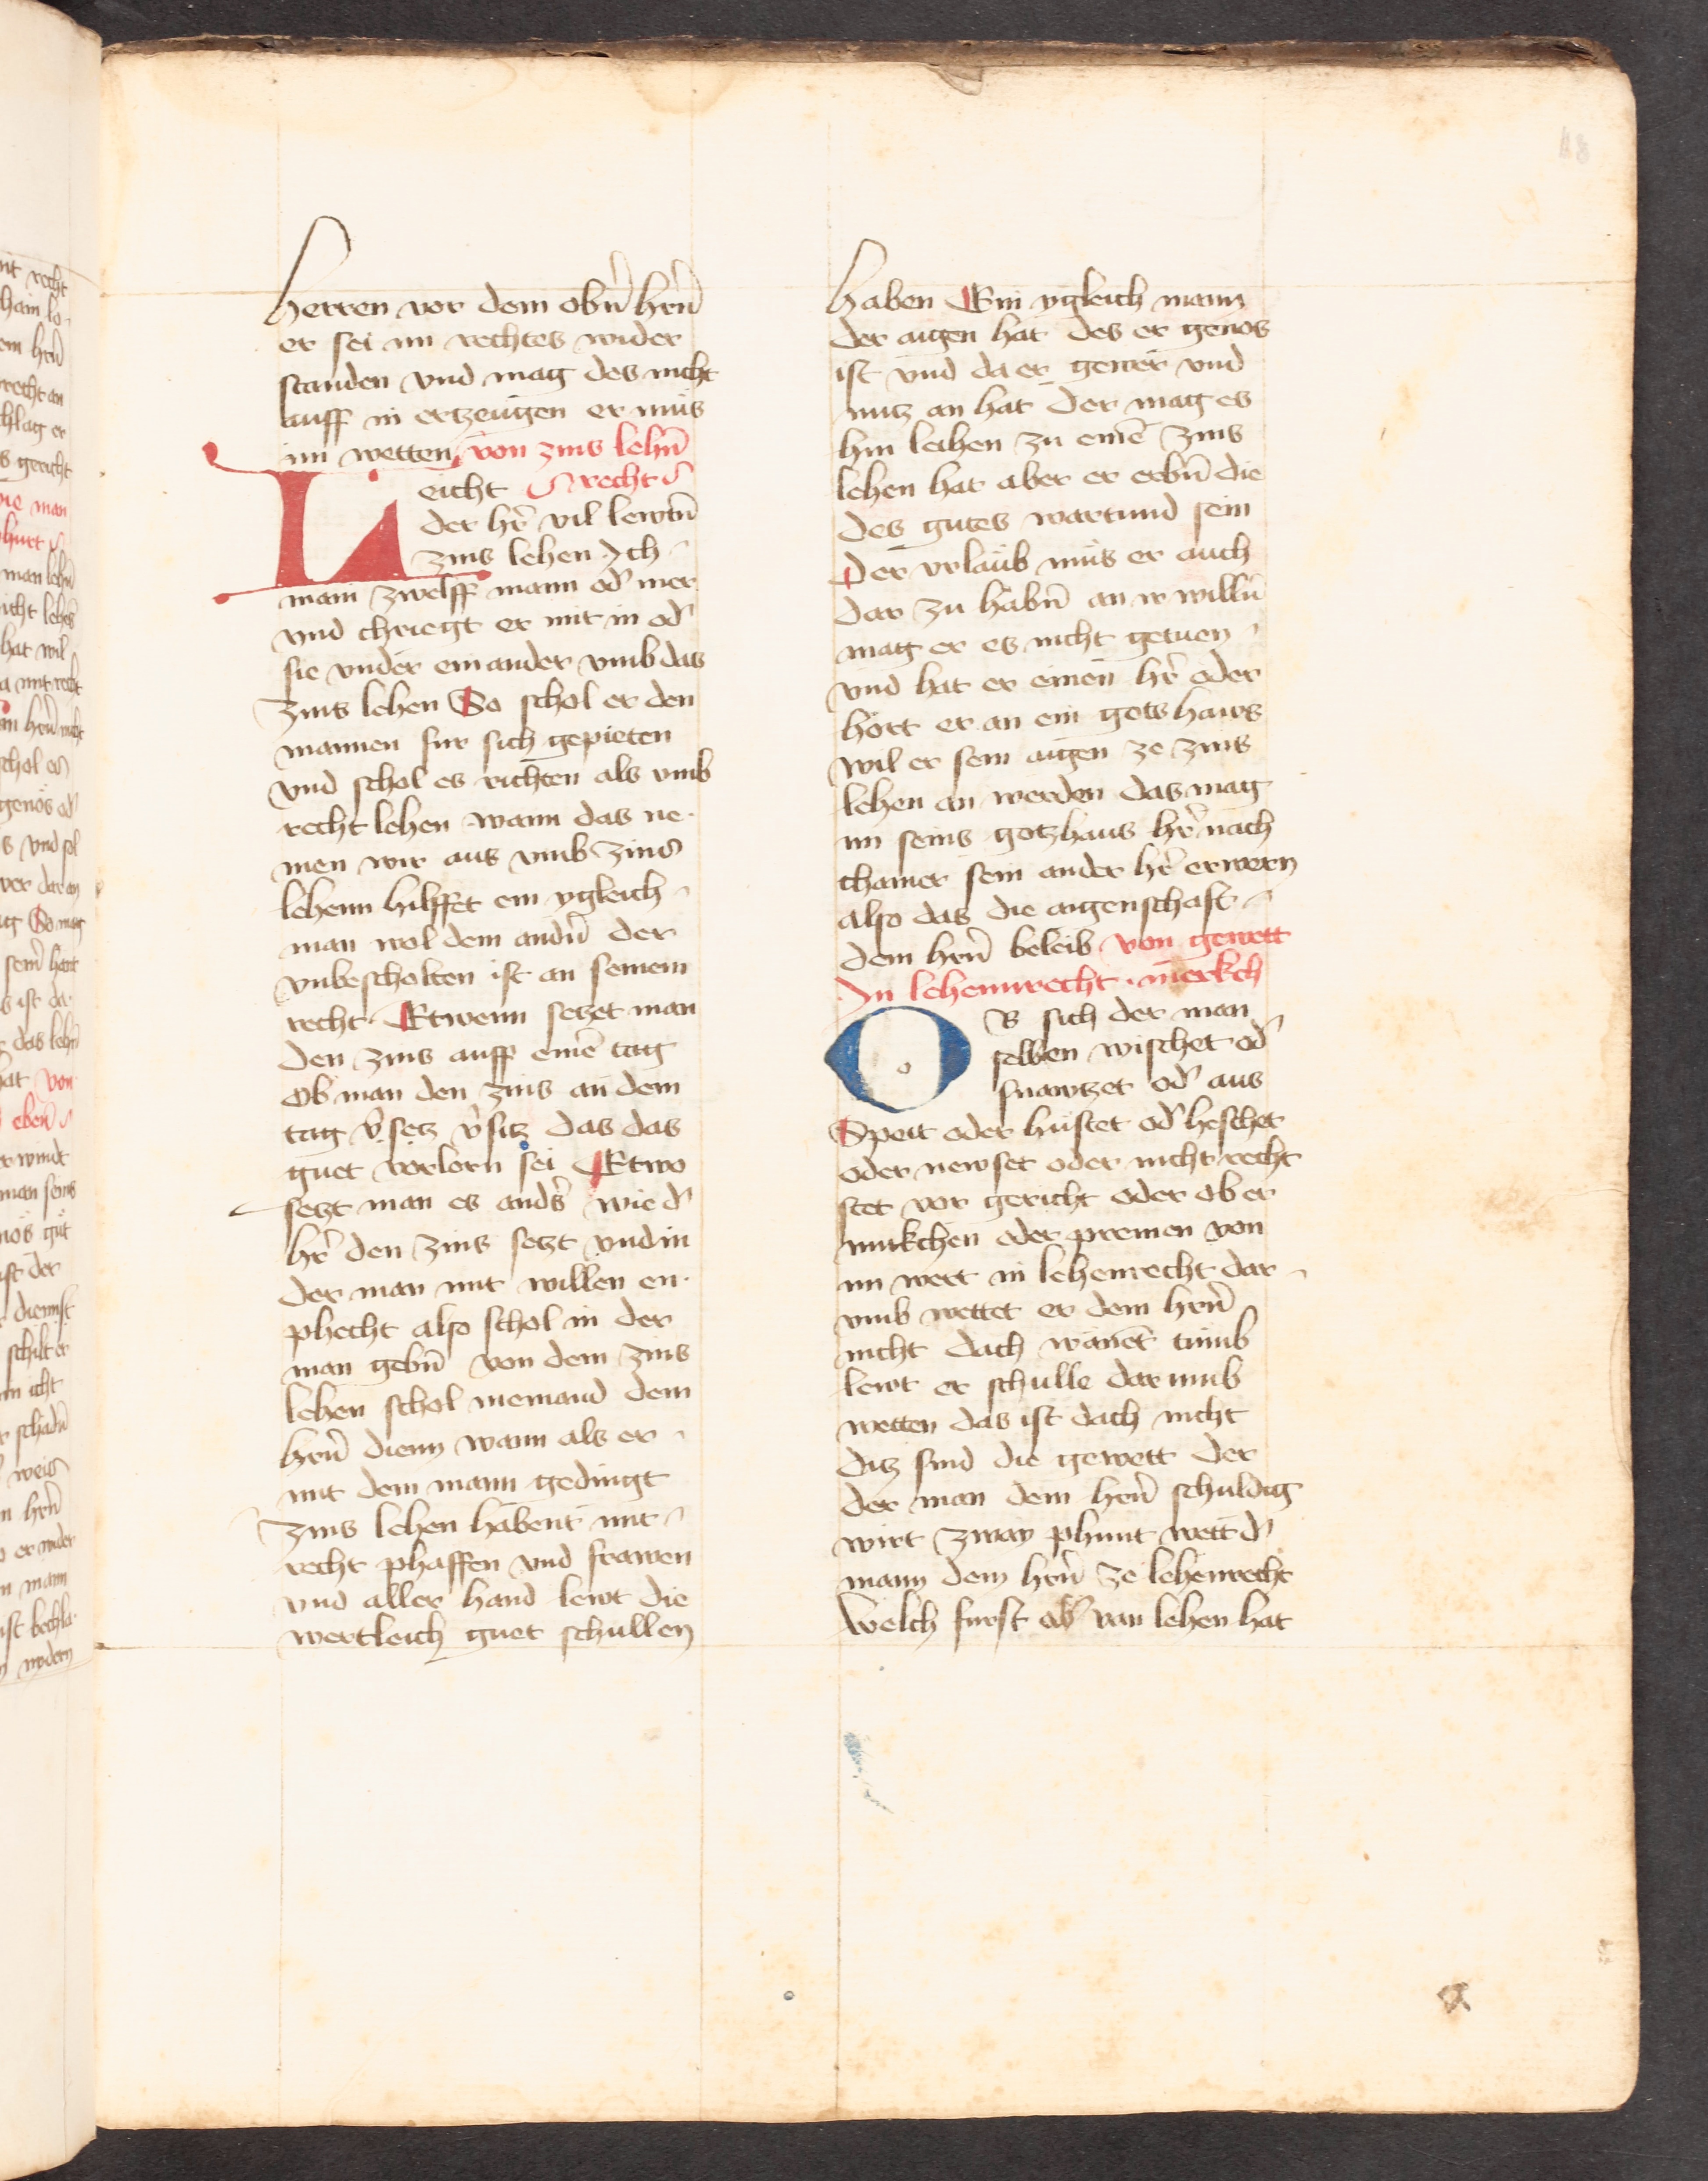 herren vor dem obn̄ hrn̄
er sei im rechtes wider
standen vnd mag des nicht
auff in ertzeugen er mus
im wetten von zins lehn̄
recht
Leicht
der hr̄ vil lewtn̄
zins lehen Ich
main zwelff mann od' mer
vnd chriegt er mit in od'
sie vnder einander vmb das
zins lehen So schol er den
mannen fur sich gepieten
vnd schol es richten als vmb
recht lehen wann das ne-
men wir aus vmb zins
lehenn hilffet ein ygleich
man wol dem andn̄ der
vnbescholten ist an seinem
recht Etwenn setzet man
den zins auff einē tag
Ob man den zins an dem
tag v̄setz v̄sitz das das
guet verlorn sei Etwo
setzt man es anders wie d'
hr̄ den zins setzt vnd in
der man mit willen en-
phecht also schol in der
man gebn̄ von dem zins
lehen schol niemand dem
hrn̄ dienn wann als er
mit dem mann gedingt
zins lehen habent mit
recht phaffen vnd frawen
vnd aller hand lewt die
wertleich guet schullen
haben Ein ygleich mann
der aigen hat des er genos
ist vnd da er gewer vnd
nutz an hat Der mag es
hin leihen zu einē zins
lehen hat aber er erbn̄ die
des gutes wartund sein
Der vrlaub mus er auch
dar zu habn̄ an ir willn̄
mag er es nicht getuen
vnd hat er einen hr̄ oder
hort er an ein gots haws
wil er sein aigen ze zins
lehen an werden das mag
im seins gotzhaus hr̄ nach
chamer sein ander hr̄ erwern
also das die aigenschaft
dem hrn̄ beleib von gewett
In lehennrecht merkch
OB sich der man
selben wischet od'
snawtzet od' aus
Speit oder hustet od' heschet
oder newset oder nicht recht
stet vor gericht oder ob er
mukchen oder premen von
im wert in lehenrecht dar
vmb wettet er dem hrn̄
nicht dach wanet tumb
lewt er schulle dar umb
wetten das ist dach nicht
ditz sind die gewett der
der man dem hrn̄ schuldig
wirt zway phunt wett d'
mann dem hrn̄ ze lehenrecht
Welch furst ab' van lehen hat